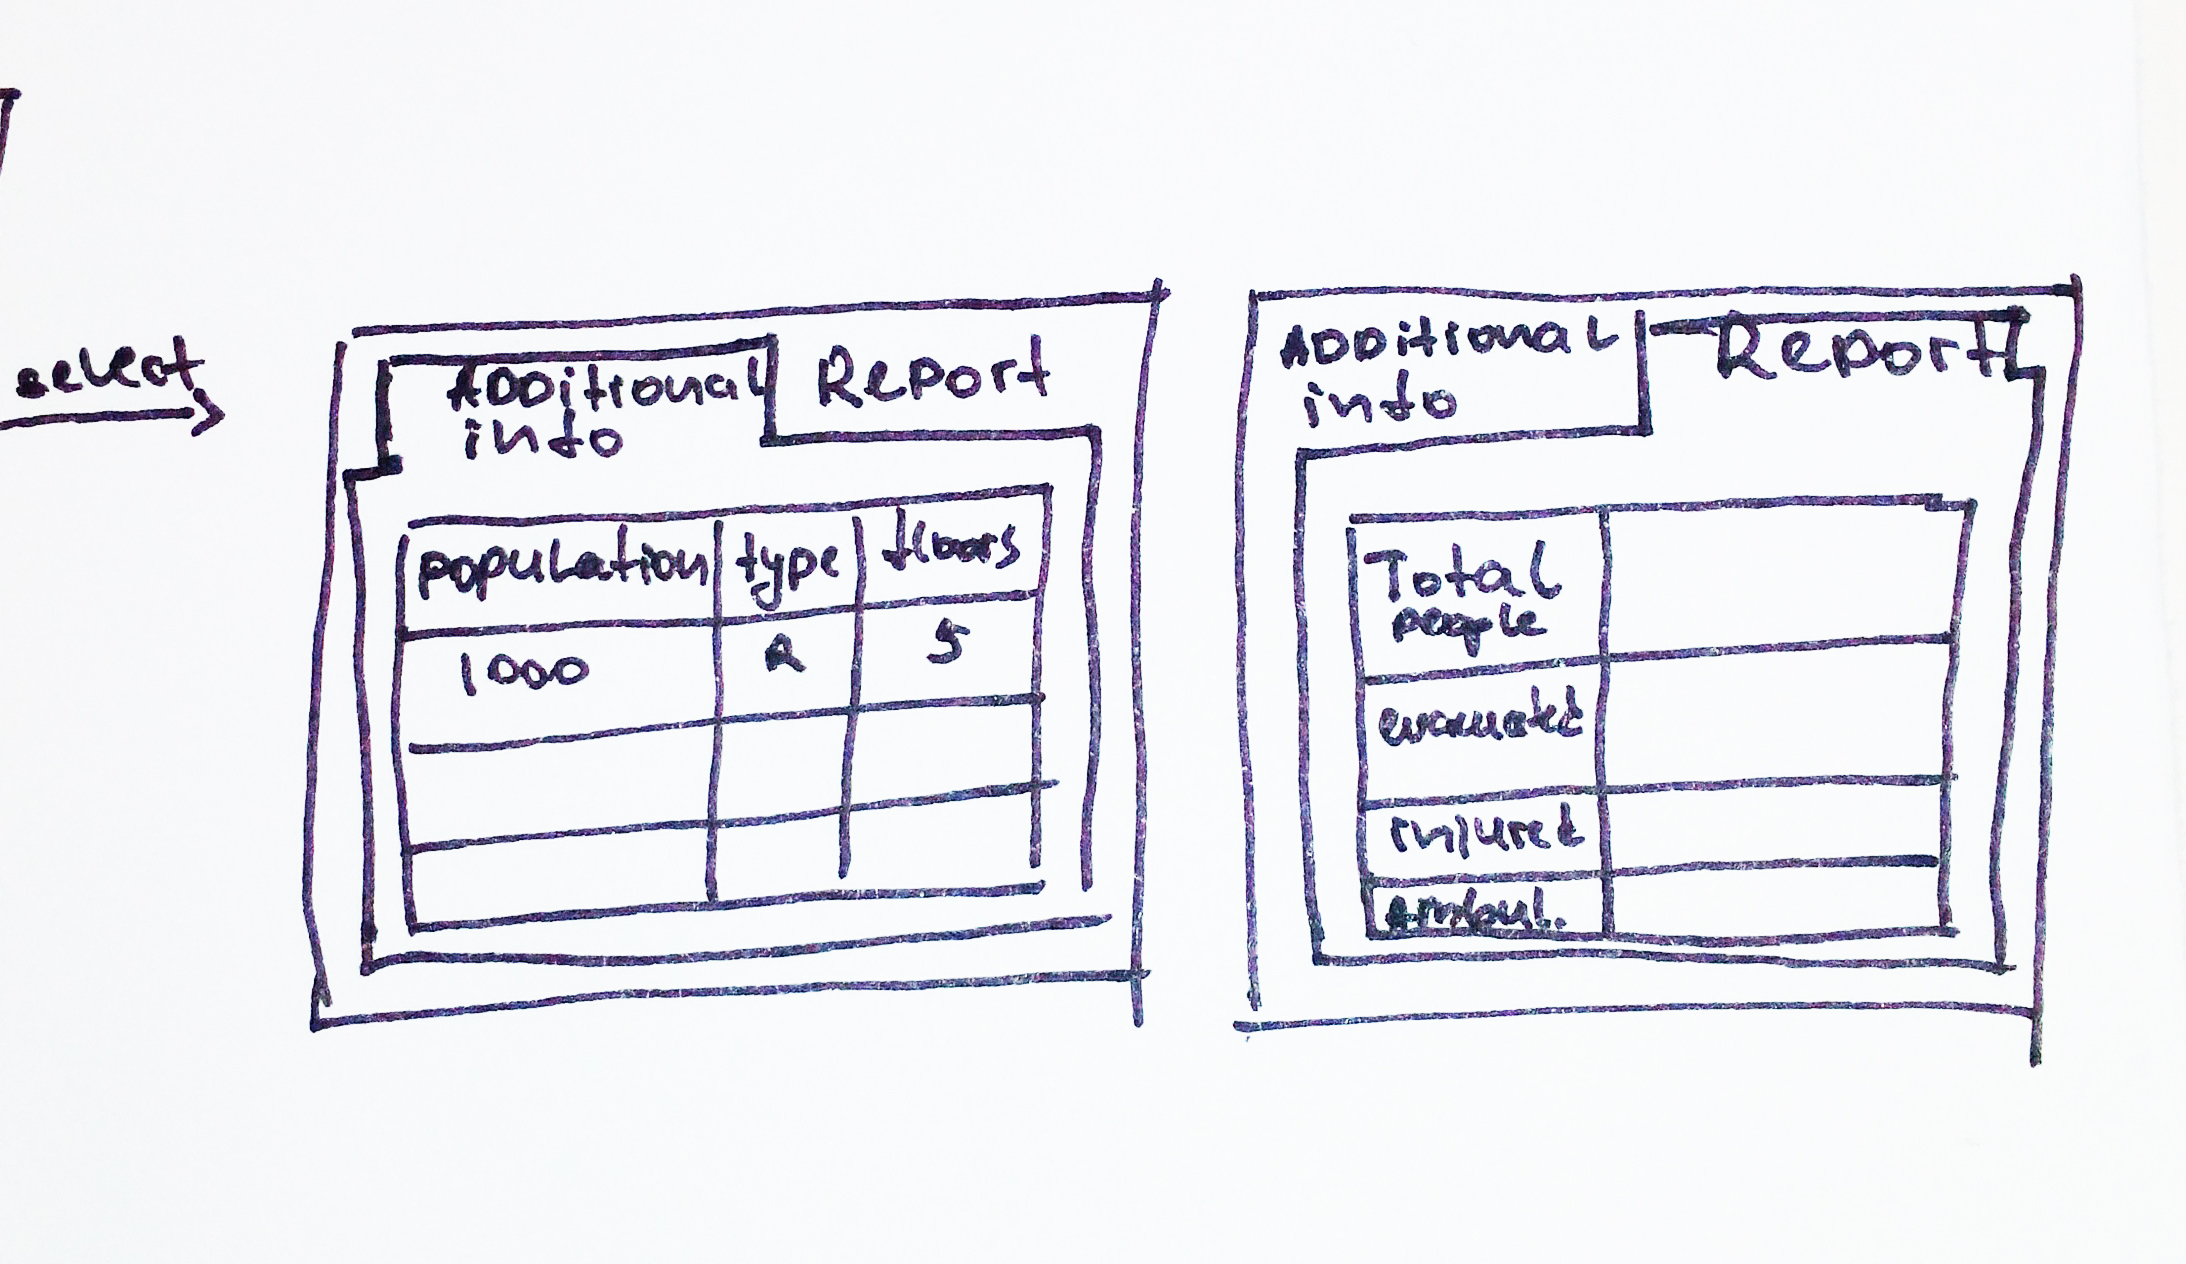 select
Additional
info
Report
population type floors
1000 R 5
Additional
info
Report
Total
people
evacuated
injured
Ambul.